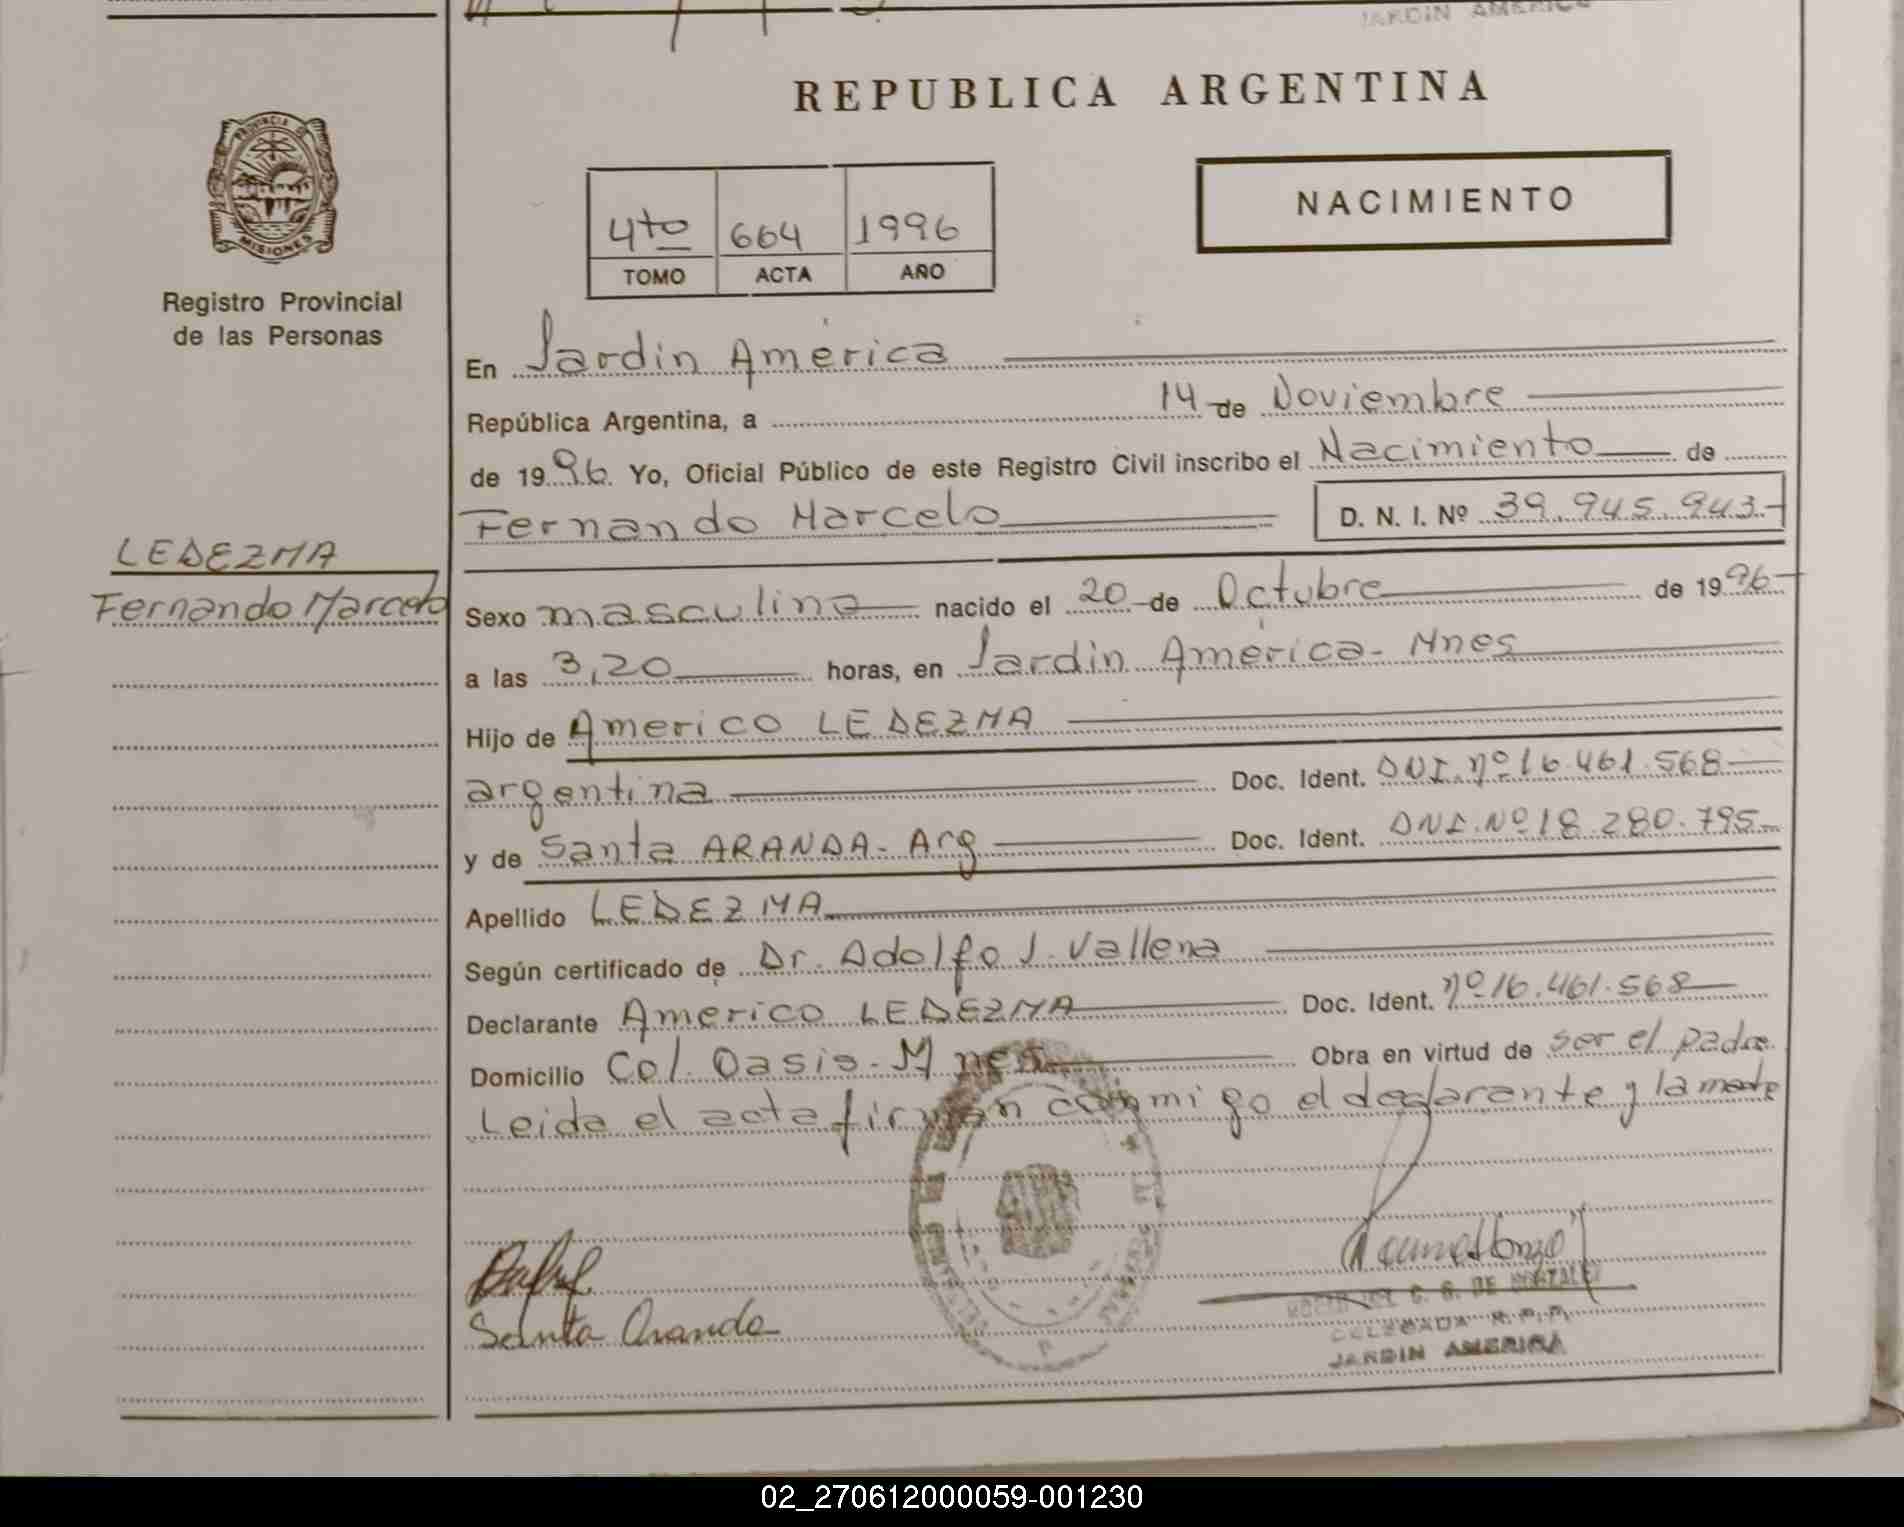 JARDIN AMERICA
REPUBLICA ARGENTINA
PROVINCIA DE
MISIONES
Registro Provincial
de las Personas
NACIMIENTO
4to 664 1996
TOMO ACTA AÑO
En Jardin America
República Argentina, a 14 de Noviembre
de 1996. Yo, Oficial Público de este Registro Civil inscribo el Nacimiento de
Fernando Marcelo D. N. I. Nº 39.945.943.-
LEDEZMA
Fernando Marcelo
Sexo masculino nacido el 20 de Octubre de 1996
a las 3,20 horas, en Jardin America - Mnes
Hijo de Americo LEDEZMA
argentina Doc. Ident. DNI. nº 16.461.568
y de Santa ARANDA - Arg Doc. Ident. DNI. Nº 18.280.795
Apellido LEDEZMA
Según certificado de Dr. Adolfo J. Vallena
Declarante Americo LEDEZMA Doc. Ident. nº 16.461.568
Domicilio Col. Oasis - Mnes Obra en virtud de ser el padre
Leida el acta firman conmigo el declarante y la madre
Santa Aranda
DELEGADA R. P. P.
JARDIN AMERICA
02_270612000059-001230